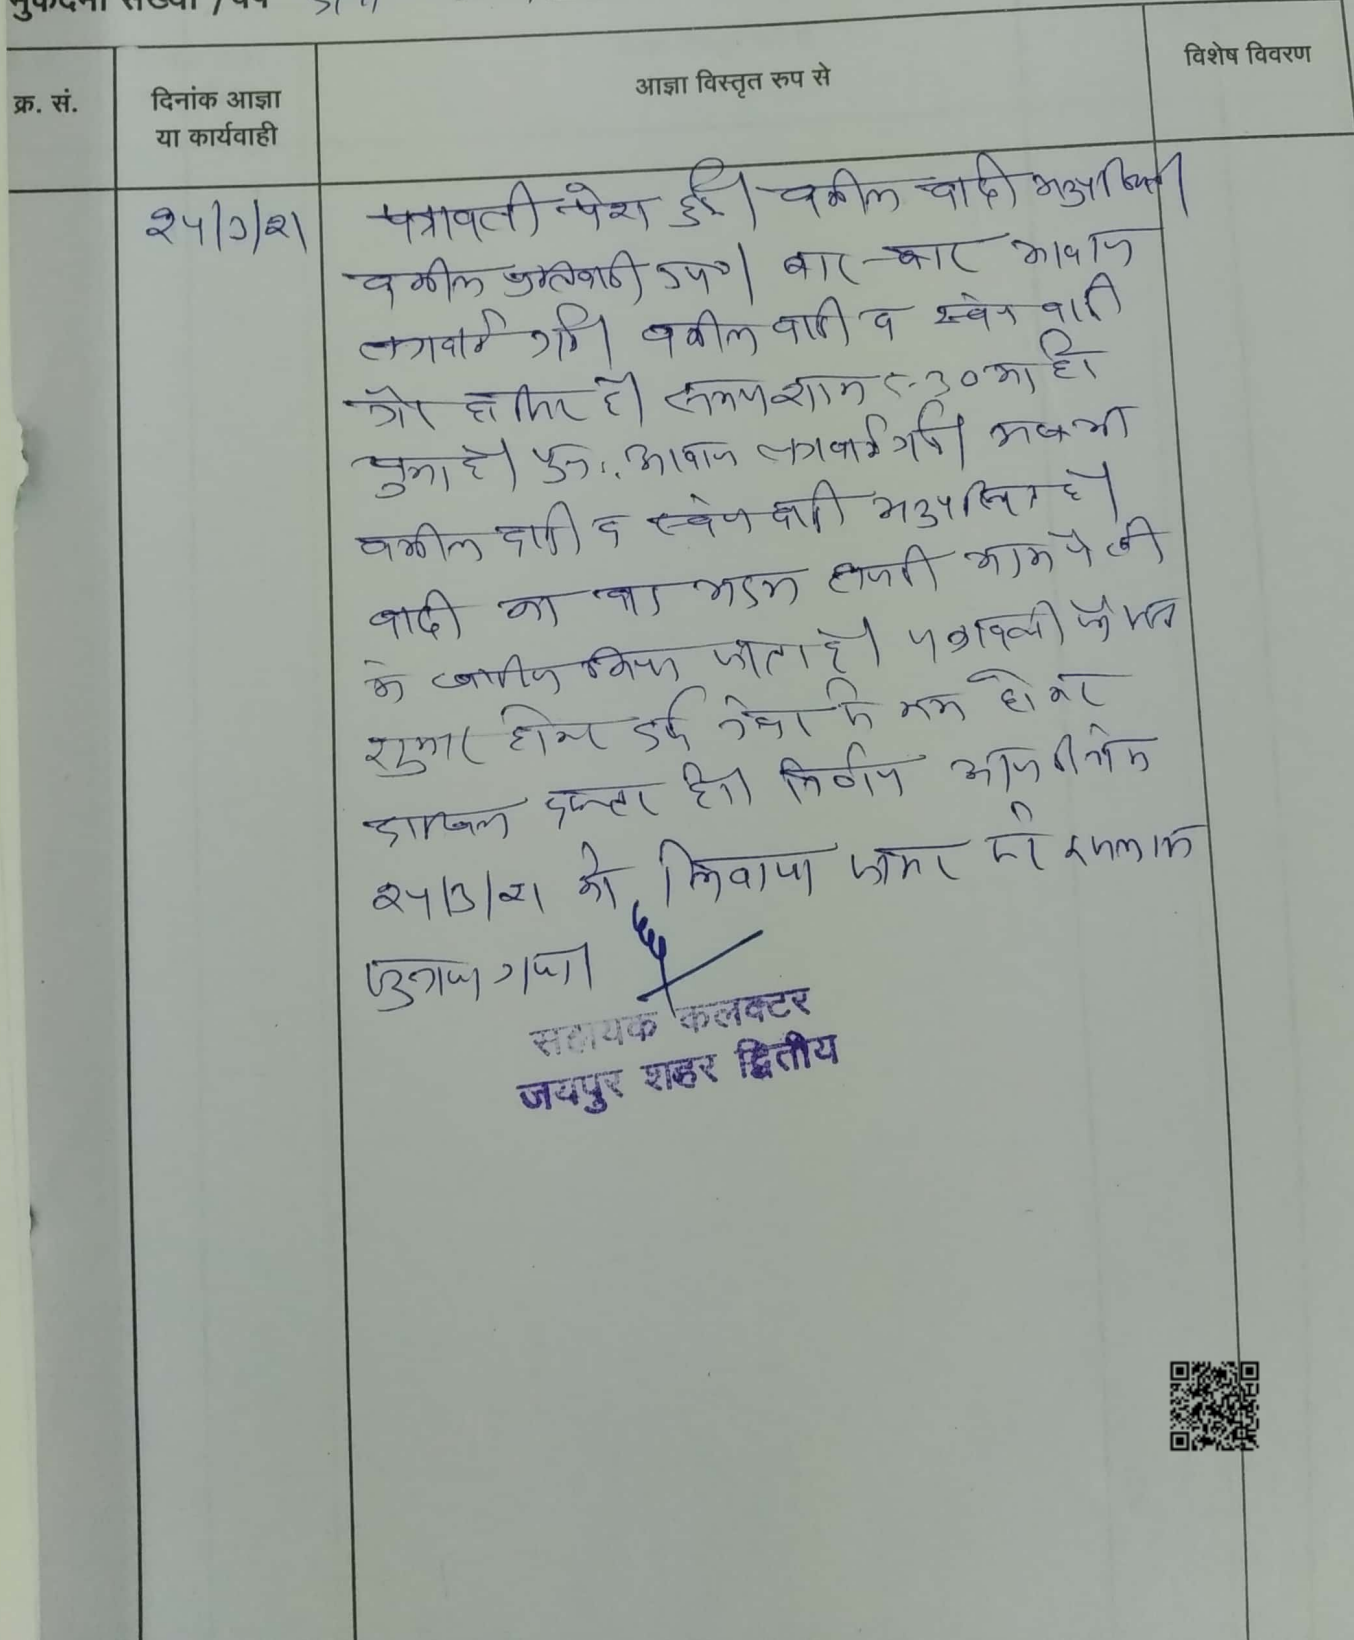 मुकदमा संख्या / वर्ष
क्र. सं.
दिनांक आज्ञा
या कार्यवाही
आज्ञा विस्तृत रुप से
विशेष विवरण
पत्रावली पेश हुई। वकील वादी अनुपस्थित।
वकील प्रतिवादी उप०। बार-बार आवाज
लगवाई गई। वकील वादी व स्वयं वादी
गैर हाजिर है। समय शाम 5-30 का हो
चुका है। पुनः आवाज लगवाई गई। अब भी
वकील वादी व स्वयं वादी अनुपस्थित है।
वादी का वाद अदम हाजरी अदम पैरवी
में खारिज किया जाता है। पत्रावली फैसल
शुमार होकर दर्ज नम्बर से कम होकर
दाखिल दफ्तर हो। निर्णय आज दिनांक
को लिखाया जाकर सरे इजलास
सुनाया गया।
सहायक कलक्टर
जयपुर शहर द्वितीय